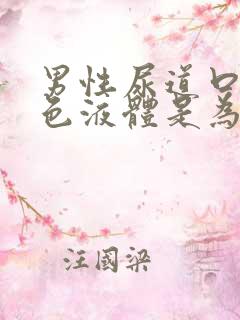 男性尿道口
色液體是為
汪國梁